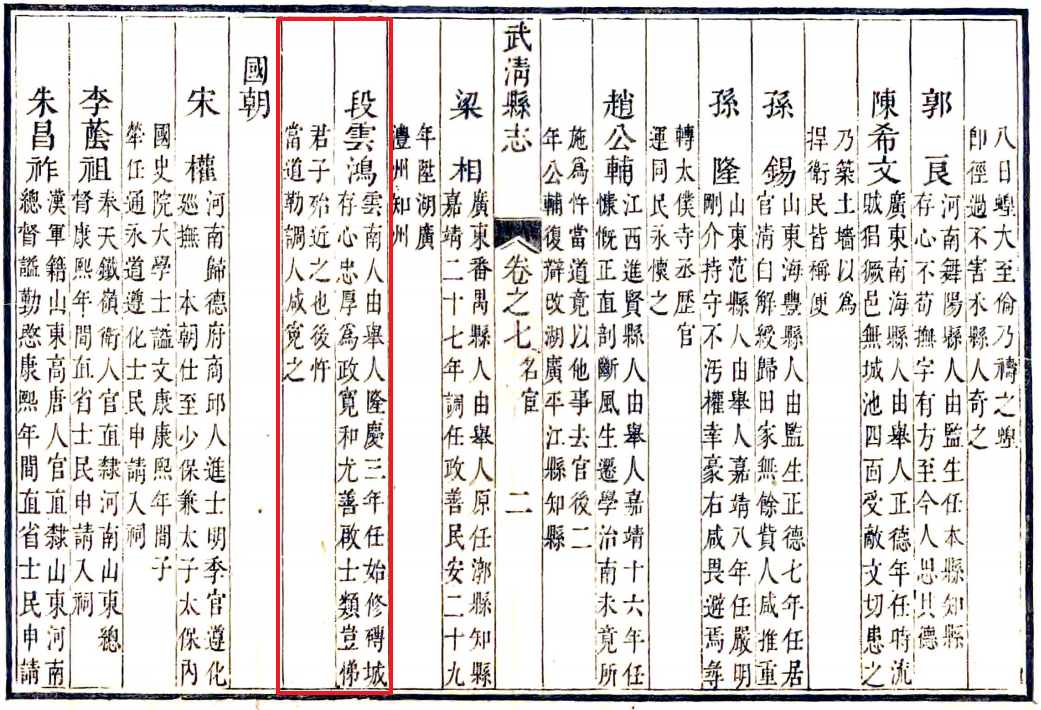 八日蝗大至倫乃禱之蝗
卽徑過不害禾縣人奇之
郭良
河南舞陽縣人由監生任本縣知縣
存心不苟撫字有方至今人思其德
陳希文
廣東南海縣人由舉人正德年任時流
賊猖獗邑無城池四面受敵文切患之
乃築土墻以爲
捍衛民皆稱便
孫錫
山東海豐縣人由監生正德七年任居
官淸白解綬歸田家無餘貲人咸推重
孫隆
山東范縣人由舉人嘉靖八年任嚴明
剛介持守不污權幸豪右咸畏避焉尋
轉太僕寺丞歷官
運同民永懷之
趙公輔
江西進賢縣人由舉人嘉靖十六年任
慷慨正直剖斷風生遷學治南未竟所
施爲忤當道竟以他事去官後二
年公輔復辯改湖廣平江縣知縣
武淸縣志 卷之七 名宦 二
梁相
廣東番禺縣人由舉人原任漷縣知縣
嘉靖二十七年調任政善民安二十九
年陞湖廣
澧州知州
段雲鴻
雲南人由舉人隆慶三年任始修磚城
存心忠厚爲政寬和尤善啟士類豈悌
君子殆近之也後忤
當道勒調人咸寃之
國朝
宋權
河南歸德府商邱人進士明季官遵化
廵撫 本朝仕至少保兼太子太保內
國史院大學士諡文康康熙年間子
犖任通永道遵化士民申請入祠
李蔭祖
奉天鐵嶺衛人官直隸河南山東總
督康熙年間直省士民申請入祠
朱昌祚
漢軍籍山東高唐人官直隸山東河南
總督諡勤愍康熙年間直省士民申請